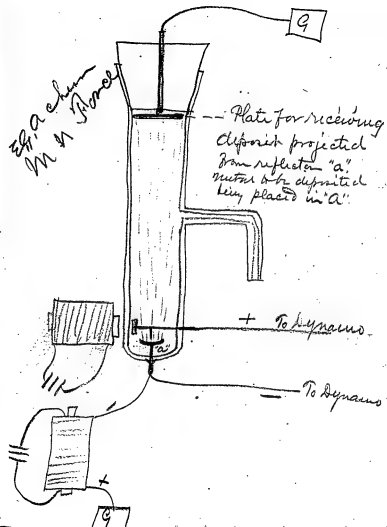 G
Plate for receiving
deposit projected
from reflector "a".
metal to be deposited
being placed in "a"
"a"
+ To Dynamo.
− To Dynamo
−
+
G